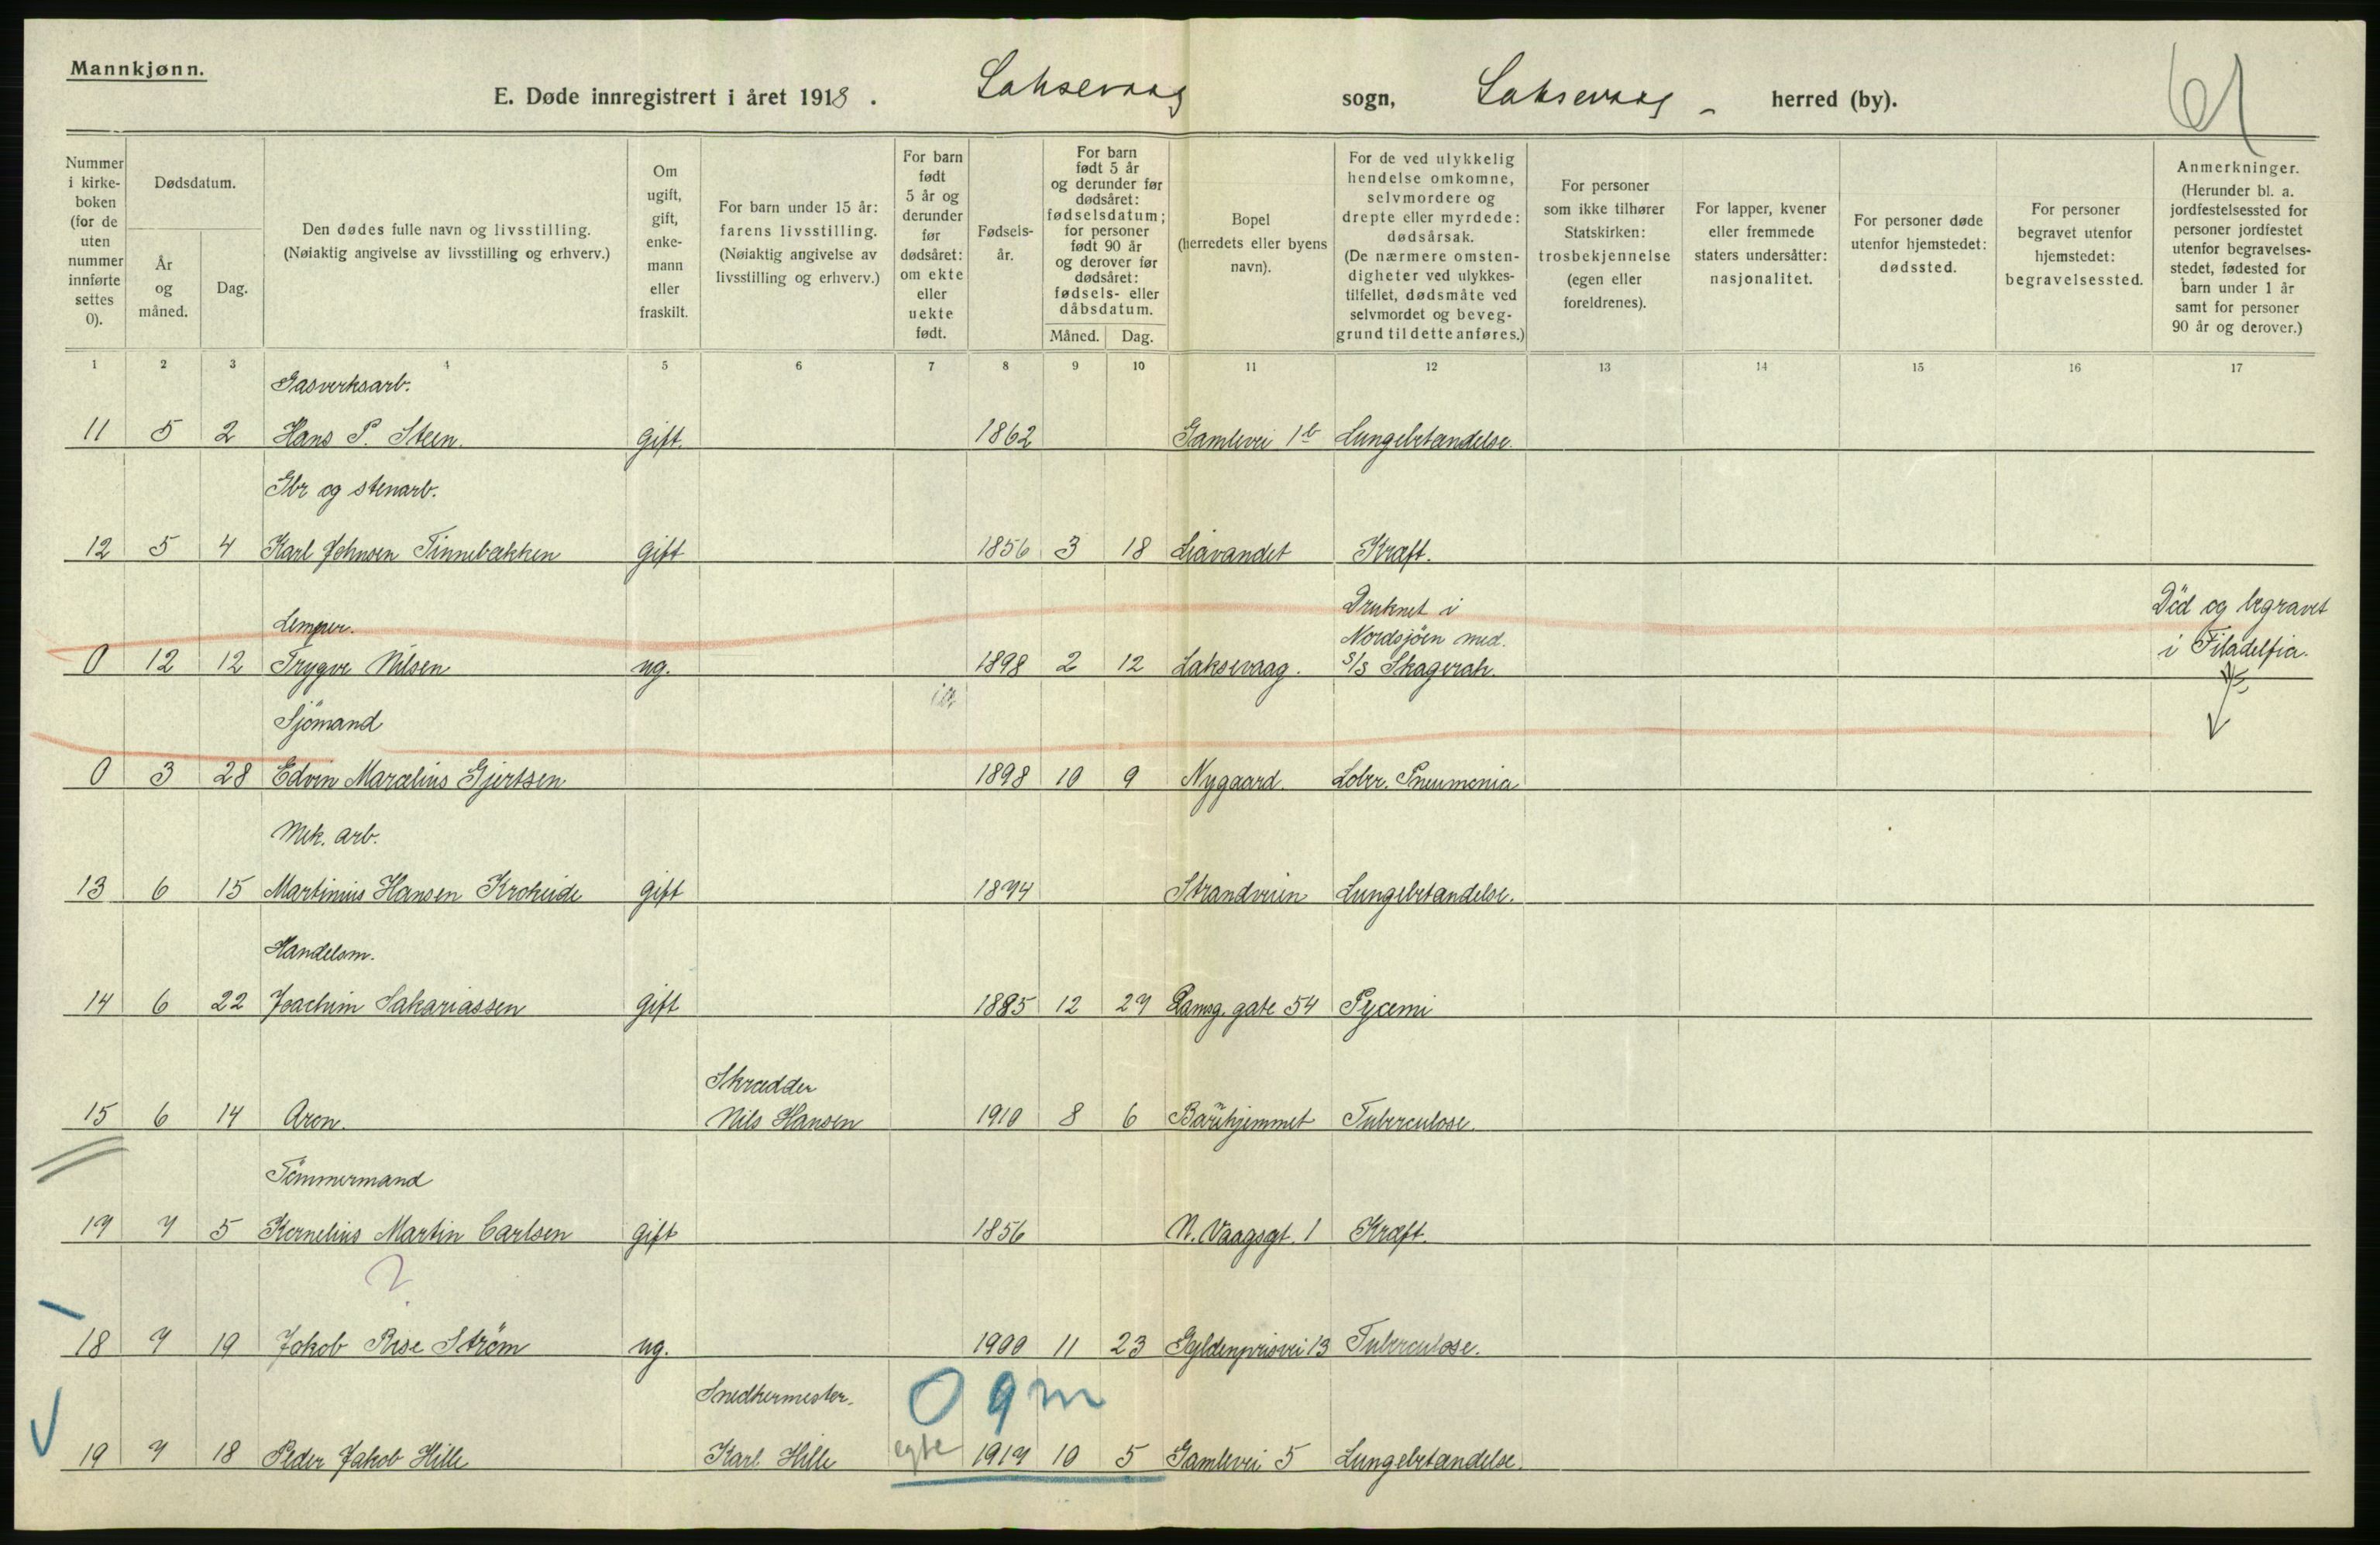 Mannkjønn.
E. Døde innregistrert i året 1918. Laksevaag sogn, Laksevaag herred (by).
61
Nummer i kirkeboken (for de uten nummer innførte settes 0).
Dødsdatum.
År og måned.
Dag.
Den dødes fulle navn og livsstilling.
(Nøiaktig angivelse av livsstilling og erhverv.)
Om ugift, gift, enkemann eller fraskilt.
For barn under 15 år: farens livsstilling.
(Nøiaktig angivelse av livsstilling og erhverv.)
For barn født 5 år og derunder før dødsåret: om ekte eller uekte født.
Fødselsår.
For barn født 5 år og derunder før dødsåret: fødselsdatum; for personer født 90 år og derover før dødsåret: fødsels- eller dåbsdatum.
Måned. Dag.
Bopel (herredets eller byens navn).
For de ved ulykkelig hendelse omkomne, selvmordere og drepte eller myrdede: dødsårsak.
(De nærmere omstendigheter ved ulykkestilfellet, dødsmåte ved selvmordet og beveggrund til dette anføres.)
For personer som ikke tilhører Statskirken: trosbekjennelse (egen eller foreldrenes).
For lapper, kvener eller fremmede staters undersåtter: nasjonalitet.
For personer døde utenfor hjemstedet: dødssted.
For personer begravet utenfor hjemstedet: begravelsessted.
Anmerkninger.
(Herunder bl. a. jordfestelsessted for personer jordfestet utenfor begravelsesstedet, fødested for barn under 1 år samt for personer 90 år og derover.)
1 2 3 4 5 6 7 8 9 10 11 12 13 14 15 16 17
Gasverksarb.
11 5 2 Hans P. Steen. gift. 1862 Gamlevei 1b Lungebetændelse.
Gbr og stenarb.
12 5 4 Karl Johnsen Tinnebækken gift 1856 3 18 Liavandet Kræft.
Lemper. Druknet i Nordsjöen med Död og begravet
0 12 12 Trygve Nilsen ug. 1898 2 12 Laksevaag. s/s Skagerak. i Filadelfia.
Sjömand
0 3 28 Edvin Marcelius Gjertsen 1898 10 9 Nygaard. Lober. Pneumonia
Mek. arb.
13 6 15 Martinius Hansen Krokeide gift 1874 Strandveien Lungebetændelse.
Handelsm.
14 6 22 Joachim Sakariassen gift 1885 12 27 Damsg. gate 54 Pyæmi
Skrædder
15 6 14 Aron. Nils Hansen 1910 8 6 Barnehjemmet Tuberculose.
Tömmermand
17 7 5 Kornelius Martin Carlsen gift 1856 N. Vaagsgt. 1 Kræft.
?
18 7 19 Jakob Rise Ström ug. 1900 11 23 Gyldenprisvei 13 Tuberculose.
Snedkermester. 0 9 m
19 7 18 Peder Jakob Hille Karl Hille egte 1917 10 5 Gamlevei 5 Lungebetændelse.